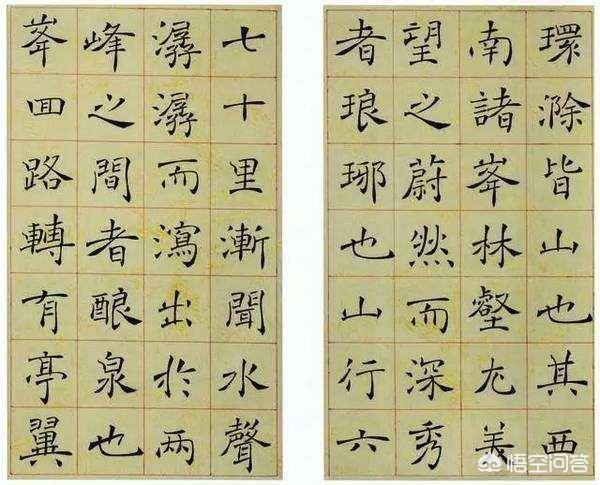 環滁皆山也其西
南諸峯林壑尤美
望之蔚然而深秀
者琅琊也山行六
七十里漸聞水聲
潺潺而瀉出於兩
峰之間者酿泉也
峯囬路轉有亭翼
悟空问答